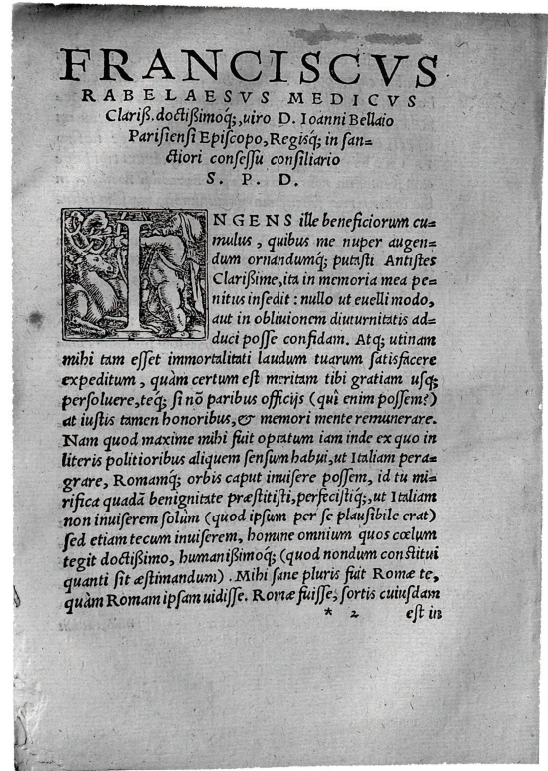 FRANCISCVS
RABELAESVS MEDICVS
Clariß. doctißimoq́;, uiro D. Ioanni Bellaio
Parisiensi Episcopo, Regisq́; in san=
ctiori consessu consiliario
S. P. D.
INGENS ille beneficiorum cu=
mulus, quibus me nuper augen=
dum ornandumq́; putasti Antistes
Clarißime, ita in memoria mea pe=
nitus insedit: nullo ut euelli modo,
aut in obliuionem diuturnitatis ad=
duci posse confidam. Atq; utinam
mihi tam esset immortalitati laudum tuarum satisfacere
expeditum, quàm certum est meritam tibi gratiam usq;
persoluere, teq́; si nõ paribus officijs (qui enim possem?)
at iustis tamen honoribus, & memori mente remunerare.
Nam quod maxime mihi fuit optatum iam inde ex quo in
literis politioribus aliquem sensum habui, ut Italiam pera=
grare, Romamq́; orbis caput inuisere possem, id tu mi=
rifica quadã benignitate præstitisti, perfecistiq́;, ut Italiam
non inuiserem solùm (quod ipsum per se plausibile erat)
sed etiam tecum inuiserem, homine omnium quos cœlum
tegit doctißimo, humanißimoq́; (quod nondum constitui
quanti sit æstimandum). Mihi sane pluris fuit Romæ te,
quàm Romam ipsam uidisse. Romæ fuisse, sortis cuiusdam
* 2 est in